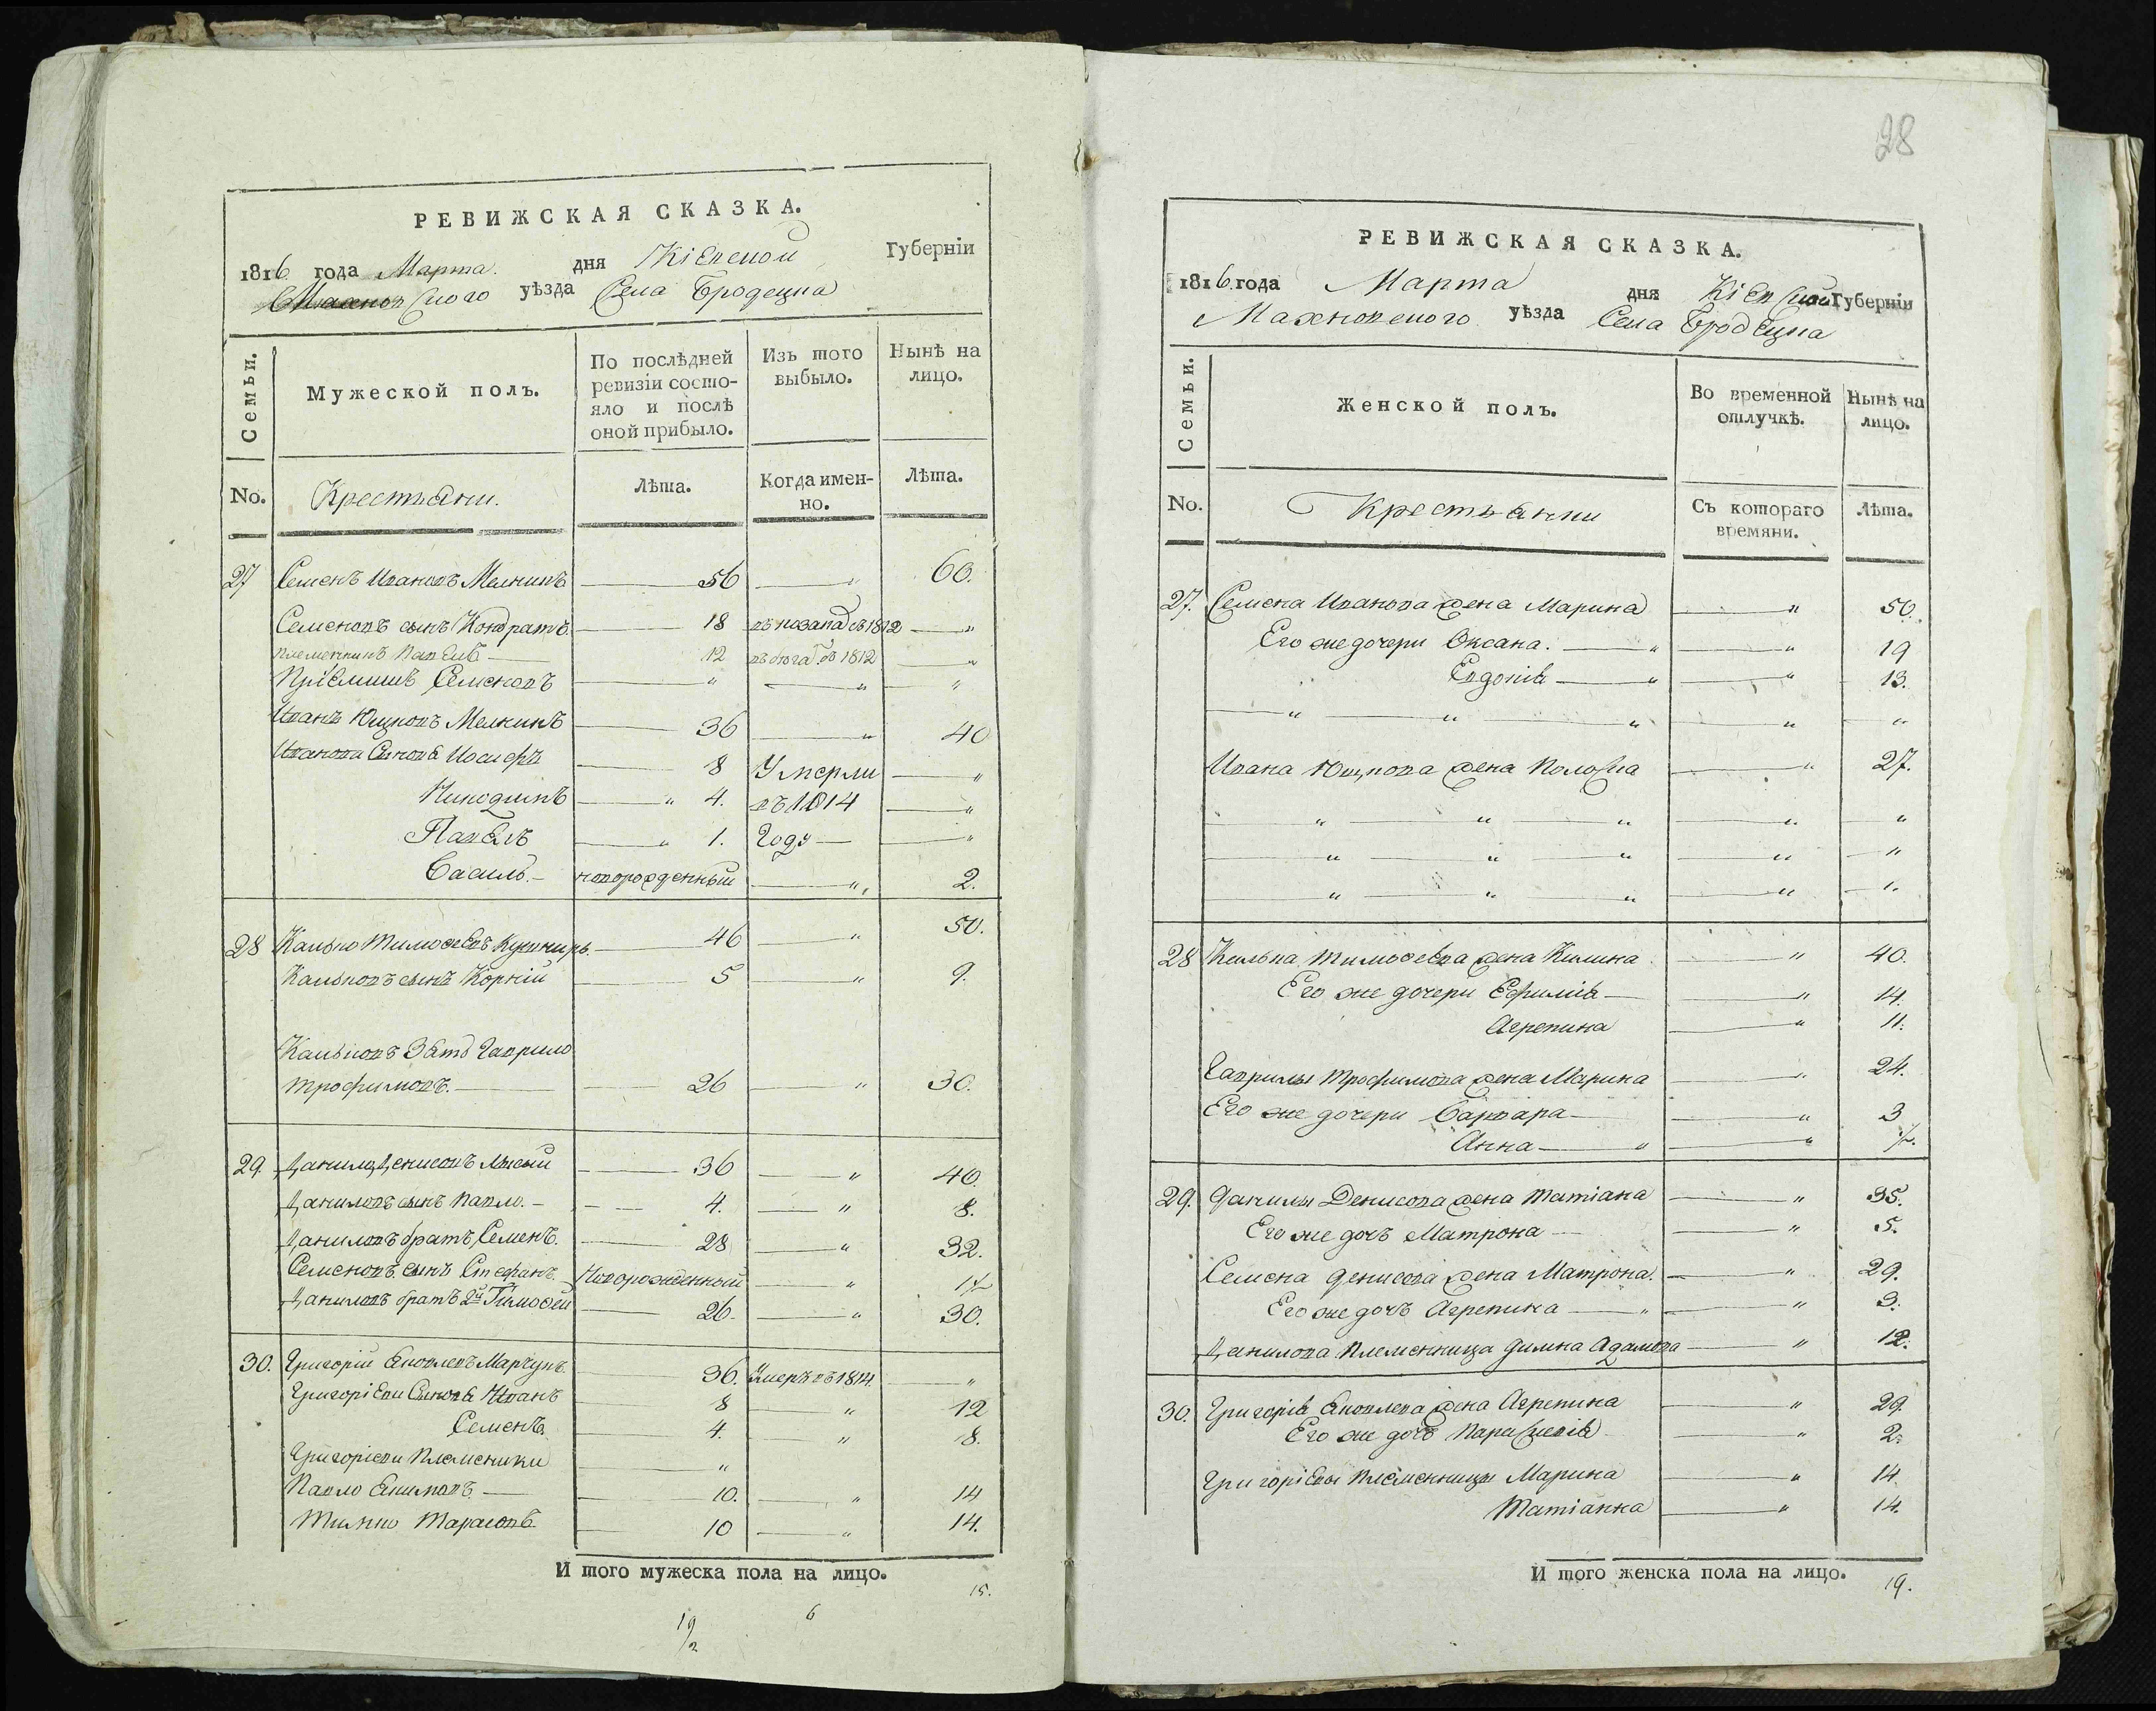 РЕВИЖСКАЯ СКАЗКА.
1816 года Марта дня Кіевской Губерніи
Махновского уѣзда Села Бродецка
Семьи.
Мужеской полъ.
По послѣдней ревизіи состояло и послѣ оной прибыло.
Изъ того выбыло.
Нынѣ на лицо.
No.
Крестьяни.
Лѣта.
Когда именно.
Лѣта.
27 Семенъ Ивановъ Мелникъ 56 " 60.
Семеновъ сынъ Кондратъ 18 1812 "
племенникъ Павелъ 12 въ 1812 "
Пріемишъ Семеновъ " " "
Иванъ Ющковъ Мелникъ 36 " 40
Иванова Синова Иосифъ 8 Умерли "
Никодимъ " 4. въ 1814 "
Павелъ " 1. Году "
Василь новорожденный " 2.
28 Калько Тимофевъ Кушниръ 46 " 50.
Кальковъ сынъ Корній 5 " 9.
Кальковъ Зять Гаврило
Трофимовъ. 26 " 30.
29. Данило Денисовъ Лисый 36 " 40.
Даниловъ сынъ Павло. 4. " 8.
Даниловъ братъ Семенъ. 28 " 32.
Семеновъ сынъ Стефанъ Новорожденный " 1/2
Даниловъ братъ 2й Тимофей 26. " 30.
30. Григорій Яковлевъ Марчукъ 36. Умеръ въ 1814. "
Григоріеви Синова Иванъ 8 " 12
Семенъ 4. " 8.
Григоріеви Племеники "
Павло Якимовъ 10. " 14
Тишко Тарасовъ 10 " 14.
И того мужеска пола на лицо. 15.
19/2 6
28
РЕВИЖСКАЯ СКАЗКА.
1816 года Марта дня Кіевской Губерніи
Махновского уѣзда Села Бродецка
Семьи.
Женской полъ.
Во временной отлучкѣ.
Нынѣ на лицо.
No.
Крестьянки
Съ котораго времяни.
Лѣта.
27. Семена Иванова жена Марина " 50.
Его же дочери Оксана. " " 19
Евдокія " " 13.
" " " " "
Ивана Ющкова жена Полоска " 27.
" " " " "
" " " " "
" " " " "
28 Калька Тимофева жена Килина " 40.
Его же дочери Ефимія " 14.
Агрепина " 11.
Гаврилы Трофимова жена Марина " 24.
Его же дочери Варвара " 3
Анна " " 1/2.
29. Данилы Денисова жена Татіана " 35.
Его же дочъ Матрона " 5.
Семена Денисова жена Матрона. " 29.
Его же дочъ Агрепина " " 3.
Данилова Племенница Димка Адамова " 12.
30. Григорія Яковлева жена Агрепина " 29.
Его же дочъ Параскевія " 2.
Григоріевы племенницы Марина " 14
Татіанна " 14.
И того женска пола на лицо. 19.